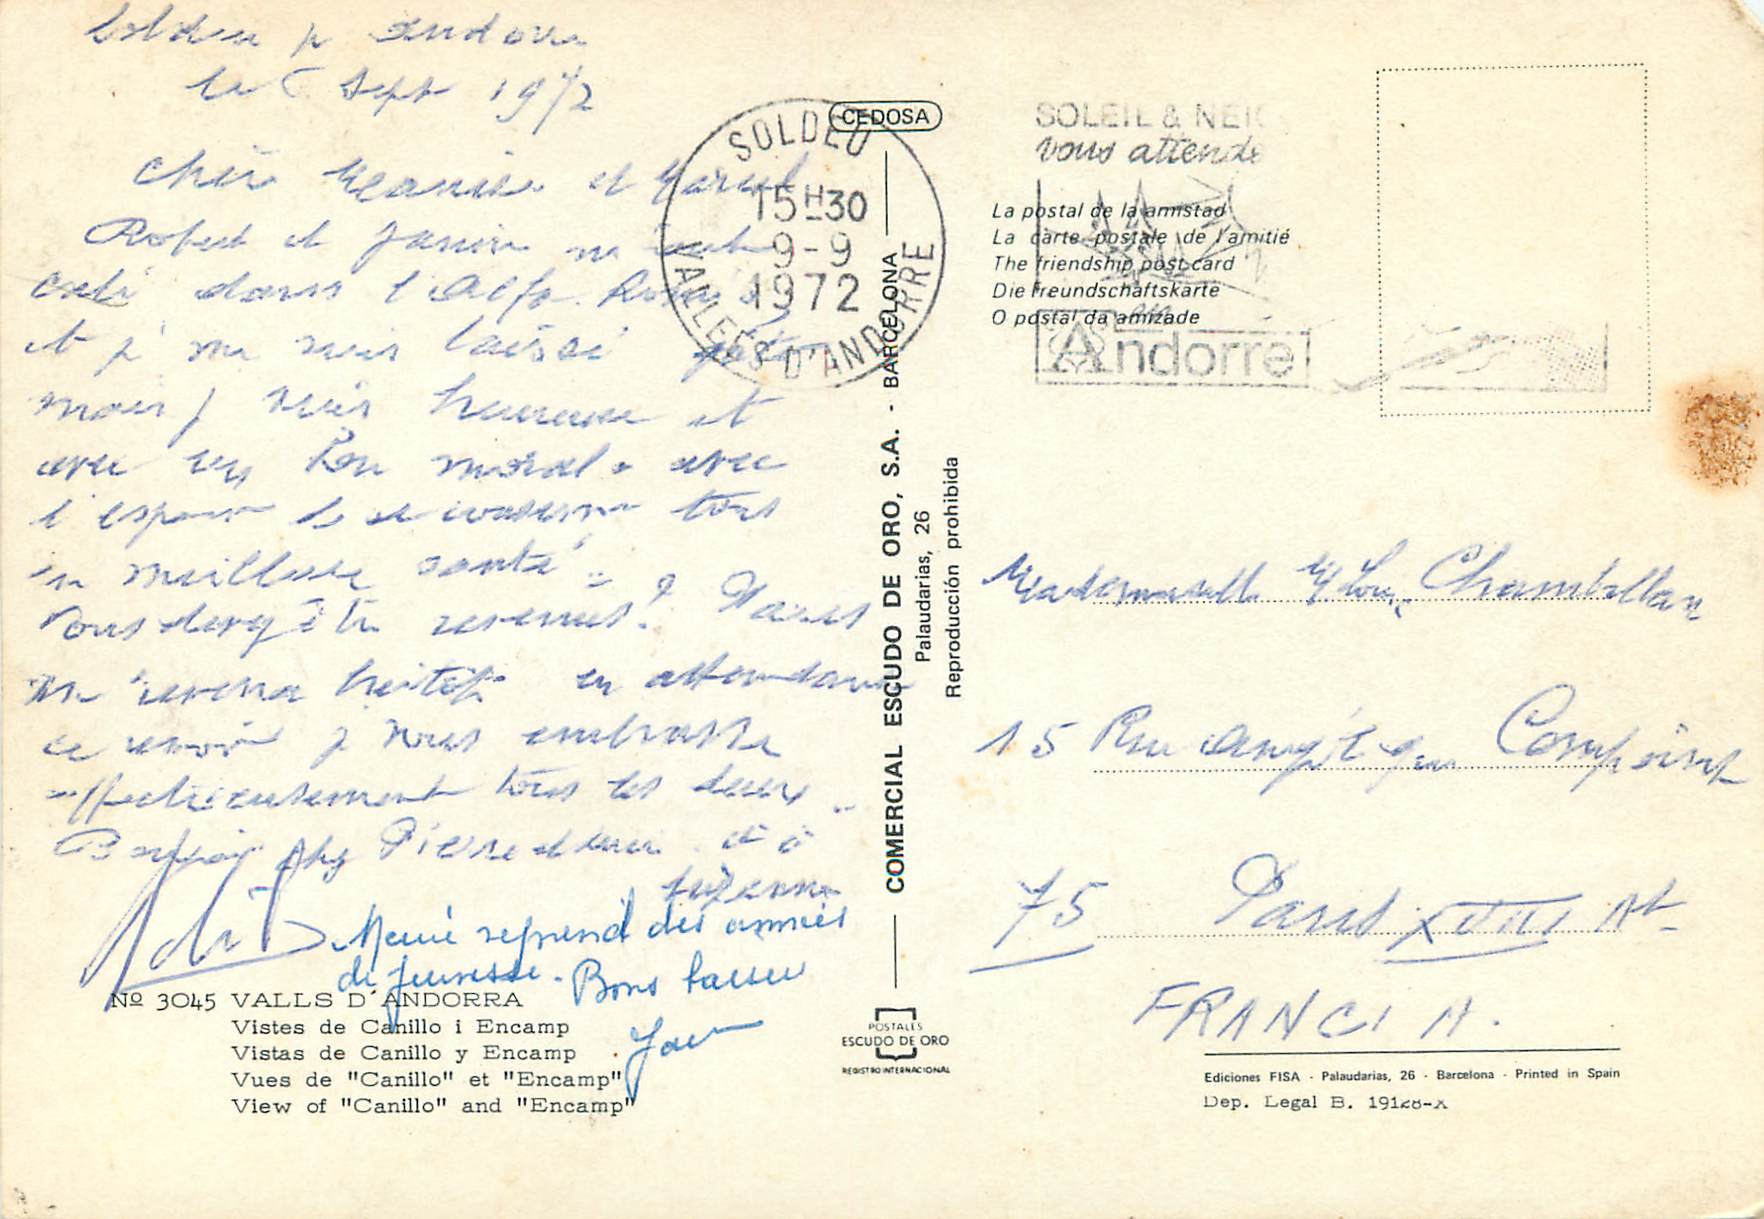 Soldeu p andorre
le Sept 1972
Chère et Marcel
Robert et Janine m
dans l'Alfa Roméo
et j me suis laissé
mais j suis heureuse et
avec un bon moral. avec
l'espoir de se tous
en meilleure santé.
Vous devez être revenus? Nous
en attendant
ce j vous embrasse
affectueusement tous les deux
Bonjour Pierre
Suzanne
Mémé reprend des années
de jeunesse. Bons baisers
Nº 3045 VALLS D'ANDORRA
Vistes de Canillo i Encamp
Vistas de Canillo y Encamp
Vues de "Canillo" et "Encamp"
View of "Canillo" and "Encamp"
CEDOSA
SOLDEU
15H30
9-9
1972
VALLEES D'ANDORRE
COMERCIAL ESCUDO DE ORO, S.A. - BARCELONA
Palaudarias, 26
Reproducción prohibida
POSTALES
ESCUDO DE ORO
REGISTRO INTERNACIONAL
SOLEIL & NEIG
vous attende
La postal de la amistad
La carte postale de l'amitié
The friendship post card
Die Freundschaftskarte
O postal da amizade
Andorre
Mademoiselle Chambellan
15 Rue Angélique Compoint
75 Paris XVIII At
FRANCIA.
Ediciones FISA - Palaudarias, 26 - Barcelona - Printed in Spain
Dep. Legal B. 19128-X